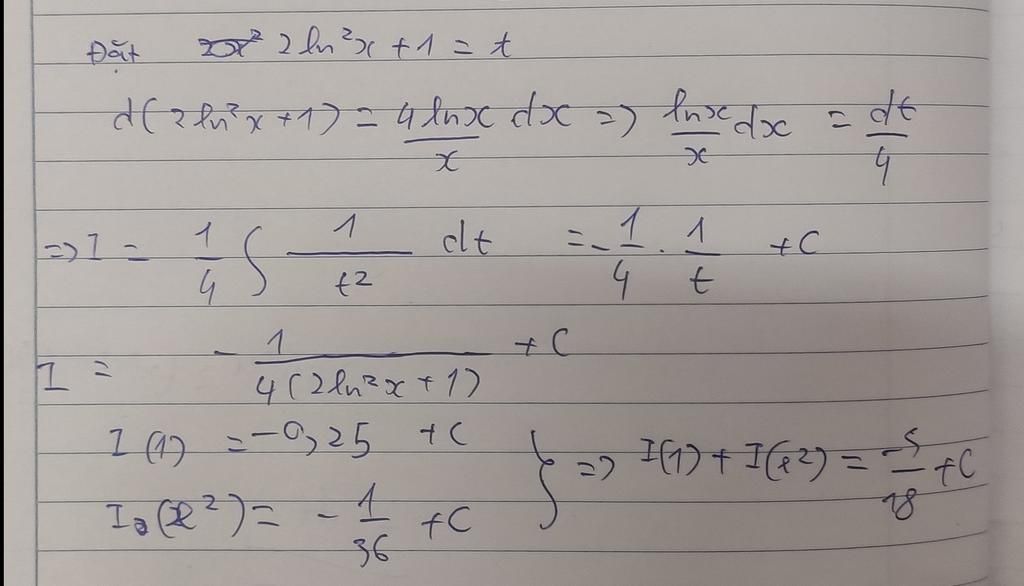 Đặt 2ln²x + 1 = t
d(2ln²x + 1) = 4lnx/x dx => lnx/x dx = dt/4
=> I = 1/4 ∫ 1/t² dt = -1/4 . 1/t + C
I = - 1/4(2ln²x + 1) + C
I(1) = -0,25 + C
I(e²) = - 1/36 + C } => I(1) + I(e²) = -5/18 + C